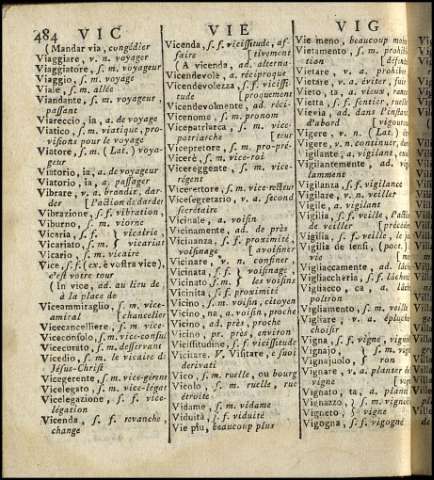 484 VIC
VIE
VIG
(Mandar via, congédier
Viaggiare, v. n. voyager
Viaggiatore, s. m. voyageur
Viaggio, s. m. voyage
Viale, s. m. allée
Viandante, s. m. voyageur,
passant
Viareccio, ia, a. de voyage
Viatico, s. m. viatique, pro-
visions pour le voyage
Viatore, s. m. (Lat.) voya-
geur
Viatorio, ia, a. de voyageur
Viatorio, ia, a. passager
Vibrare, v. a. brandir, dar-
der [l'action de darder
Vibrazione, s. f. vibration,
Viburno, s. m. viorne
Vicaria, s. f. } vicairie,
Vicariato, s. m. } vicariat
Vicario, s. m. vicaire
Vice, s. f. (ex. è vostra vice),
c'est votre tour
(In vice, ad. au lieu de,
à la place de
Viceammiraglio, s. m. vice-
amiral [chancelier
Vicecancelliere, s. m. vice-
Viceconsolo, s. m. vice-consul
Viceconto, s. m. desservant
Vicedio, s. m. le vicaire de
Jésus-Christ
Vicegerente, s. m. vice-gérent
Vicelegato, s. m. vice-légat
Vicelegazione, s. f. vice-
légation
Vicenda, s. f. revanche,
change
Vicenda, s. f. vicissitude, af-
faire [tivement
(A vicenda, ad. alterna-
Vicendevole, a. réciproque
Vicendevolezza, s. f. vicissi-
tude [proquement
Vicendevolmente, ad. réci-
Vicenome, s. m. pronom
Vicepatriarca, s. m. vice-
patriarche [teur
Vicepretore, s. m. pro-pré-
Vicerè, s. m. vice-roi
Vicereggente, s. m. vice-
régent
Vicerettore, s. m. vice-recteur
Vicesegretario, v. a. second
secrétaire
Vicinale, a. voisin
Vicinamente, ad. de près
Vicinanza, s. f. proximité,
voisinage [avoisiner
Vicinare, v. n. confiner,
Vicinata, s. f. } voisinage,
Vicinato, s. m. } les voisins
Vicinità, s. f. proximité
Vicino, s. m. voisin, citoyen
Vicino, na, a. voisin, proche
Vicino, ad. près, proche
Vicino, pr. près, environ
Vicissitudine, s. f. vicissitude
Vicitare. V. Visitare, e suoi
derivati
Vico, s. m. ruelle, ou bourg
Vicolo, s. m. ruelle, rue
étroite
Vidame, s. m. vidame
Viduità, s. f. viduité
Vie più, beaucoup plus
Vie meno, beaucoup moins
Vietamento, s. m. prohibi-
tion
Vietare, v. a. prohiber
Vietare, v. a. éviter, fuir
Vieto, ta, a. vieux, ranci
Vietta, s. f. sentier, ruelle
Vievia, ad. dans l'instant,
d'abord
Vigere, v. n. (Lat.)
Vigere, v. n. continuer,
Vigilante, a. vigilant,
Vigilantemente, ad. vigi-
lamment
Vigilanza, s. f. vigilance
Vigilare, v. n. veiller
Vigile, a. vigilant
Vigilia, s. f. veille, l'action
de veiller
Vigilia, s. f. veille, le
Vigilia de' sensi, (poet.)
vie
Vigliaccamente, ad.
Vigliaccheria, s. f.
Vigliacco, ca, a.
poltron
Vigliamento, s. m.
Vigliare, v. a.
choisir
Vigna, s. f. vigne,
Vignajo, s. m. }
Vignajuolo, }
Vignare, v. a. planter
vigne
Vignato, ta, a.
Vignazzo, s. m. }
Vigneto, } vigne
Vigogna, s. f. vigogne